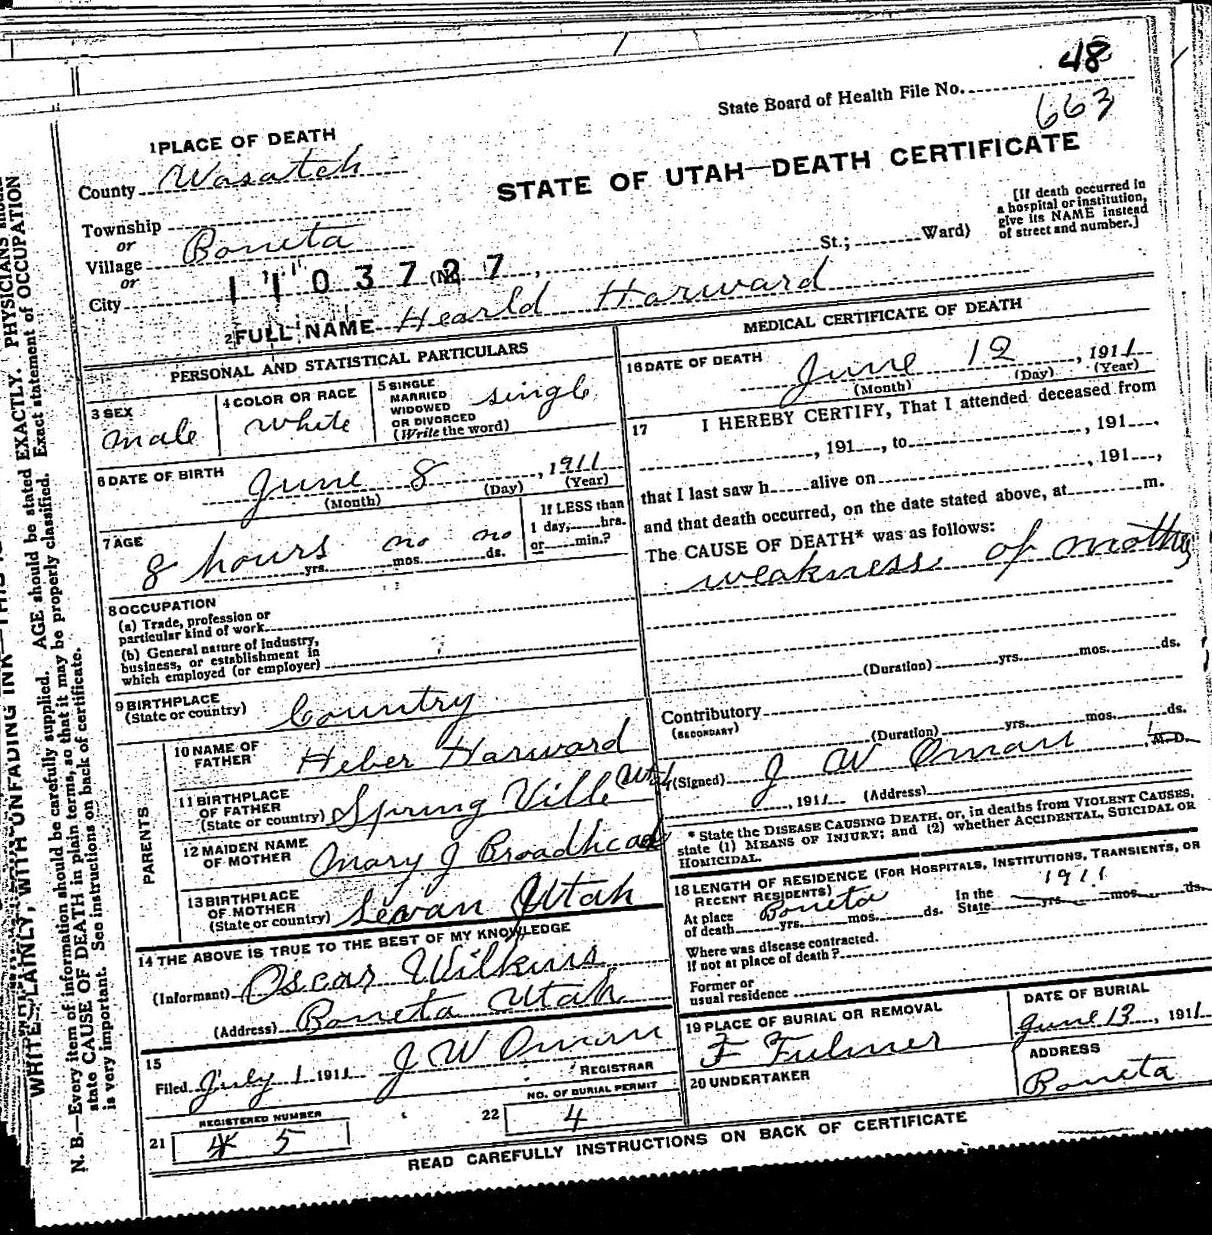 48
State Board of Health File No.
663
1 PLACE OF DEATH
County Wasatch
STATE OF UTAH—DEATH CERTIFICATE
Township
or
Village Boneta
or
City
1103727
(No. St.; Ward)
[If death occurred in a hospital or institution, give its NAME instead of street and number.]
2 FULL NAME Hearld Harward
PERSONAL AND STATISTICAL PARTICULARS
3 SEX
male
4 COLOR OR RACE
white
5 SINGLE
MARRIED
WIDOWED
OR DIVORCED
(Write the word)
single
6 DATE OF BIRTH
June 8, 1911
(Month) (Day) (Year)
7 AGE
8 hours yrs. no mos. no ds.
If LESS than
1 day, hrs.
or min.?
8 OCCUPATION
(a) Trade, profession or
particular kind of work
(b) General nature of industry,
business, or establishment in
which employed (or employer)
9 BIRTHPLACE
(State or country) Country
PARENTS
10 NAME OF
FATHER Heber Harward
11 BIRTHPLACE
OF FATHER
(State or country) Spring Ville Utah
12 MAIDEN NAME
OF MOTHER Mary J Broadhead
13 BIRTHPLACE
OF MOTHER
(State or country) Levan Utah
14 THE ABOVE IS TRUE TO THE BEST OF MY KNOWLEDGE
(Informant) Oscar Wilkins
(Address) Boneta Utah
15
Filed July 1 1911 J W Oman
REGISTRAR
REGISTERED NUMBER
21 4 5
NO. OF BURIAL PERMIT
22 4
MEDICAL CERTIFICATE OF DEATH
16 DATE OF DEATH
June 12, 1911
(Month) (Day) (Year)
17 I HEREBY CERTIFY, That I attended deceased from
, 191 , to , 191 ,
that I last saw h alive on , 191 ,
and that death occurred, on the date stated above, at m.
The CAUSE OF DEATH* was as follows:
weakness of mother
(Duration) yrs. mos. ds.
Contributory
(SECONDARY)
(Duration) yrs. mos. ds.
(Signed) J W Oman M.D.
, 1911 (Address)
* State the DISEASE CAUSING DEATH, or, in deaths from VIOLENT CAUSES,
state (1) MEANS OF INJURY; and (2) whether ACCIDENTAL, SUICIDAL OR
HOMICIDAL.
18 LENGTH OF RESIDENCE (FOR HOSPITALS, INSTITUTIONS, TRANSIENTS, OR
RECENT RESIDENTS)
At place
of death Boneta yrs. mos. ds.
In the
State 1911 yrs. mos. ds.
Where was disease contracted.
if not at place of death?
Former or
usual residence
19 PLACE OF BURIAL OR REMOVAL
F Fulmer
DATE OF BURIAL
June 13, 1911
20 UNDERTAKER
ADDRESS
Boneta
READ CAREFULLY INSTRUCTIONS ON BACK OF CERTIFICATE
WRITE PLAINLY, WITH UNFADING INK
N. B.—Every item of information should be carefully supplied. AGE should be stated EXACTLY. PHYSICIANS should
state CAUSE OF DEATH in plain terms, so that it may be properly classified. Exact statement of OCCUPATION
is very important. See instructions on back of certificate.